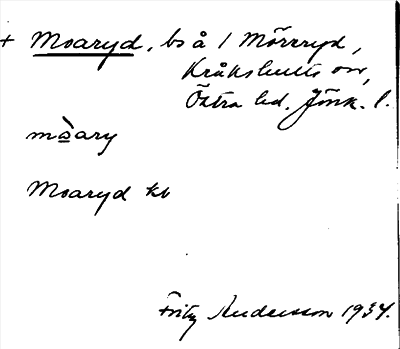 + Moaryd, bs å 1 Mörrryd,
Kråkshults sn,
Östra hd. Jönk. l.
mòary
Moaryd kb
Fritz Andersson 1934.